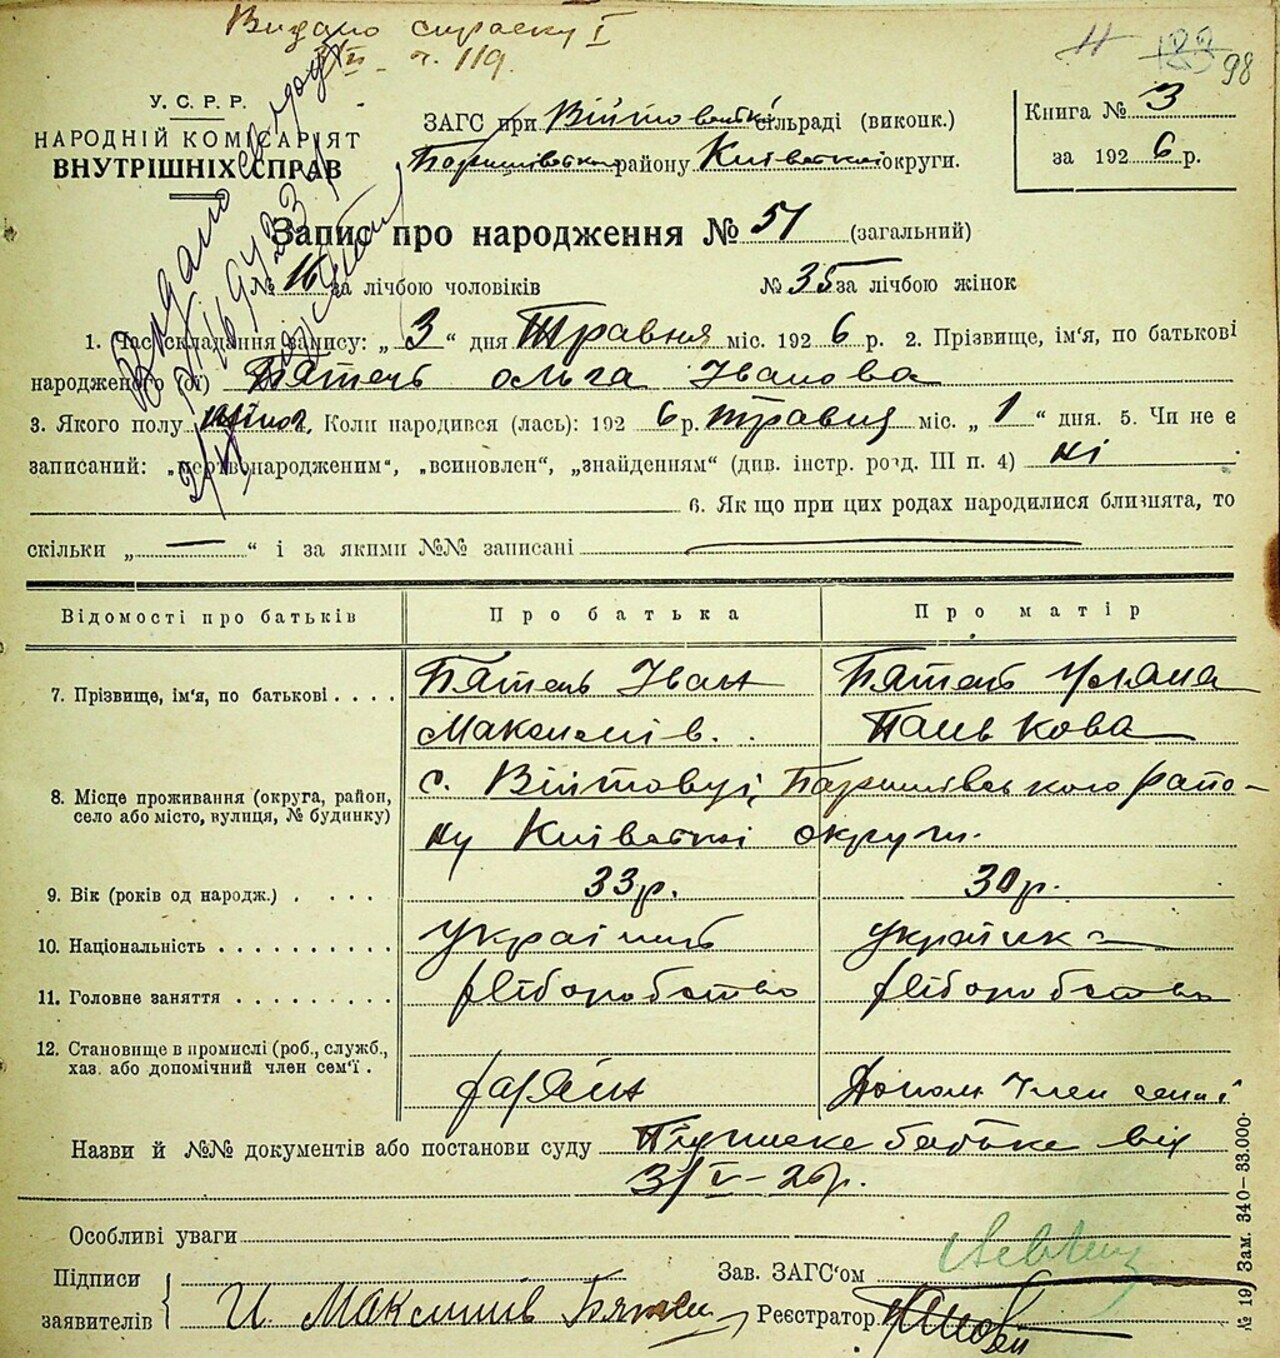 Видано справку І
98
У. С. Р. Р.
НАРОДНІЙ КОМІСАРІЯТ
ВНУТРІШНІХ СПРАВ
ЗАГС при Війтовецькій сільраді (виконк.)
Баришівського району Київської округи.
Книга № 3
за 1926 р.
Запис про народження № 51 (загальний)
№ 16 за лічбою чоловіків № 35 за лічбою жінок
1. Час складання запису: „ 3 “ дня Травня міс. 1926 р. 2. Прізвище, ім'я, по батькові
народженого (ої) Бятець Ольга Іванова
3. Якого полу жіноч. Коли народився (лась): 1926 р. травня міс. „ 1 “ дня. 5. Чи не є
записаний: „мертвонародженим“, „всиновлен“, „знайденням“ (див. інстр. розд. III п. 4) ні
6. Як що при цих родах народилися близнята, то
скільки „ — “ і за якими №№ записані —
Відомості про батьків Про батька Про матір
7. Прізвище, ім'я, по батькові . . . . Бятець Іван Бятець Уляна
Максимів. Панькова
8. Місце проживання (округа, район, с. Війтовці, Баришівського райо-
село або місто, вулиця, № будинку) ну Київської округи.
9. Вік (років од народж.) . . . . 33 р. 30 р.
10. Національність . . . . . . . . . . українець українка
11. Головне заняття . . . . . . . . . хліборобство хліборобство
12. Становище в промислі (роб., служб.,
хаз. або допомічний член сем'ї . хазяїн Допом. член семії
Назви й №№ документів або постанови суду Підписка батька від
3/V–26 р.
Особливі уваги
Підписи Зав. ЗАГС'ом
заявителів И. Максимів Реєстратор
№ 19 Зам. 340—33.000.